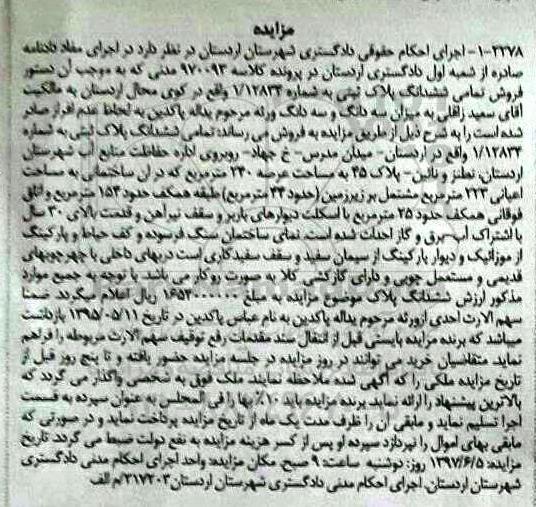 مزایده
۱-۲۲۷۸- اجرای احکام حقوقی دادگستری شهرستان اردستان در نظر دارد در اجرای مفاد دادنامه
صادره از شعبه اول دادگستری اردستان در پرونده کلاسه ۹۷۰۰۹۳ مدنی که به موجب آن دستور
فروش تمامی ششدانگ پلاک ثبتی به شماره ۱/۱۲۸۳۴ واقع در کوی محال اردستان به مالکیت
آقای سعید زاقلی به میزان سه دانگ و سه دانگ ورثه مرحوم یداله پاکدین به لحاظ عدم افراز صادر
شده است را به شرح ذیل از طریق مزایده به فروش می رساند: تمامی ششدانگ پلاک ثبتی به شماره
۱/۱۲۸۳۴ واقع در اردستان- میدان مدرس- خ جهاد- روبروی اداره حفاظت منابع آب شهرستان
اردستان، نطنز و نائین- پلاک ۳۵ به مساحت عرصه ۲۴۰ مترمربع که در آن ساختمانی به مساحت
اعیانی ۲۲۳ مترمربع مشتمل بر زیرزمین (حدود ۴۴ مترمربع) طبقه همکف حدود ۱۵۴ مترمربع و اتاق
فوقانی همکف حدود ۲۵ مترمربع با اسکلت دیوارهای باربر و سقف تیرآهن و قدمت بالای ۳۰ سال
با اشتراک آب-برق و گاز احداث شده است. نمای ساختمان سنگ فرسوده و کف حیاط و پارکینگ
از موزائیک و دیوار پارکینگ از سیمان سفید و سقف سفیدکاری است دربهای داخلی با چهرچوبهای
قدیمی و مستعمل چوبی و دارای گازکشی کلا به صورت روکار می باشد. با توجه به جمیع موارد
مذکور ارزش ششدانگ پلاک موضوع مزایده به مبلغ ۱۶۵۳۰۰۰۰۰۰ ریال اعلام میگردد. ضمنا
سهم الارث احدی ازورثه مرحوم یداله پاکدین به نام عباس پاکدین در تاریخ ۱۳۹۵/۰۵/۱۱ بازداشت
میباشد که برنده مزایده بایستی قبل از انتقال سند مقدمات رفع توقیف سهم الارث مربوطه را فراهم
نماید. متقاضیان خرید می توانند در روز مزایده در جلسه مزایده حضور یافته و تا پنج روز قبل از
تاریخ مزایده ملکی را که آگهی شده ملاحظه نمایند. ملک فوق به شخصی واگذار می گردد که
بالاترین پیشنهاد را ارائه نماید. برنده مزایده باید ۱۰٪ بها را فی المجلس به عنوان سپرده به قسمت
اجرا تسلیم نماید و مابقی آن را ظرف مدت یک ماه از تاریخ مزایده پرداخت نماید و در صورتی که
مابقی بهای اموال را نپردازد سپرده او پس از کسر هزینه مزایده به نفع دولت ضبط می گردد. تاریخ
مزایده: ۱۳۹۷/۶/۵ روز: دوشنبه ساعت: ۹ صبح. مکان مزایده: واحد اجرای احکام مدنی دادگستری
شهرستان اردستان. اجرای احکام مدنی دادگستری شهرستان اردستان ۲۱۷۲۰۳/م الف